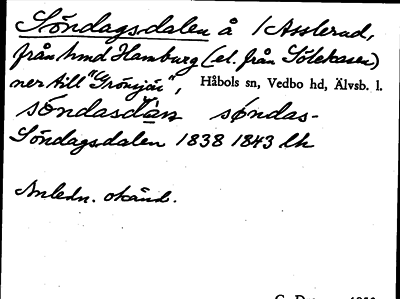 Söndagsdalen å 1 Asslerud,
från hmd Hamburg (el. från Sölekasen)
ner till "Grönsjön",
Håbols sn, Vedbo hd, Älvsb. l.
söndasdan søndas-
Söndagsdalen 1838 1843 lh
Anledn. okänd.